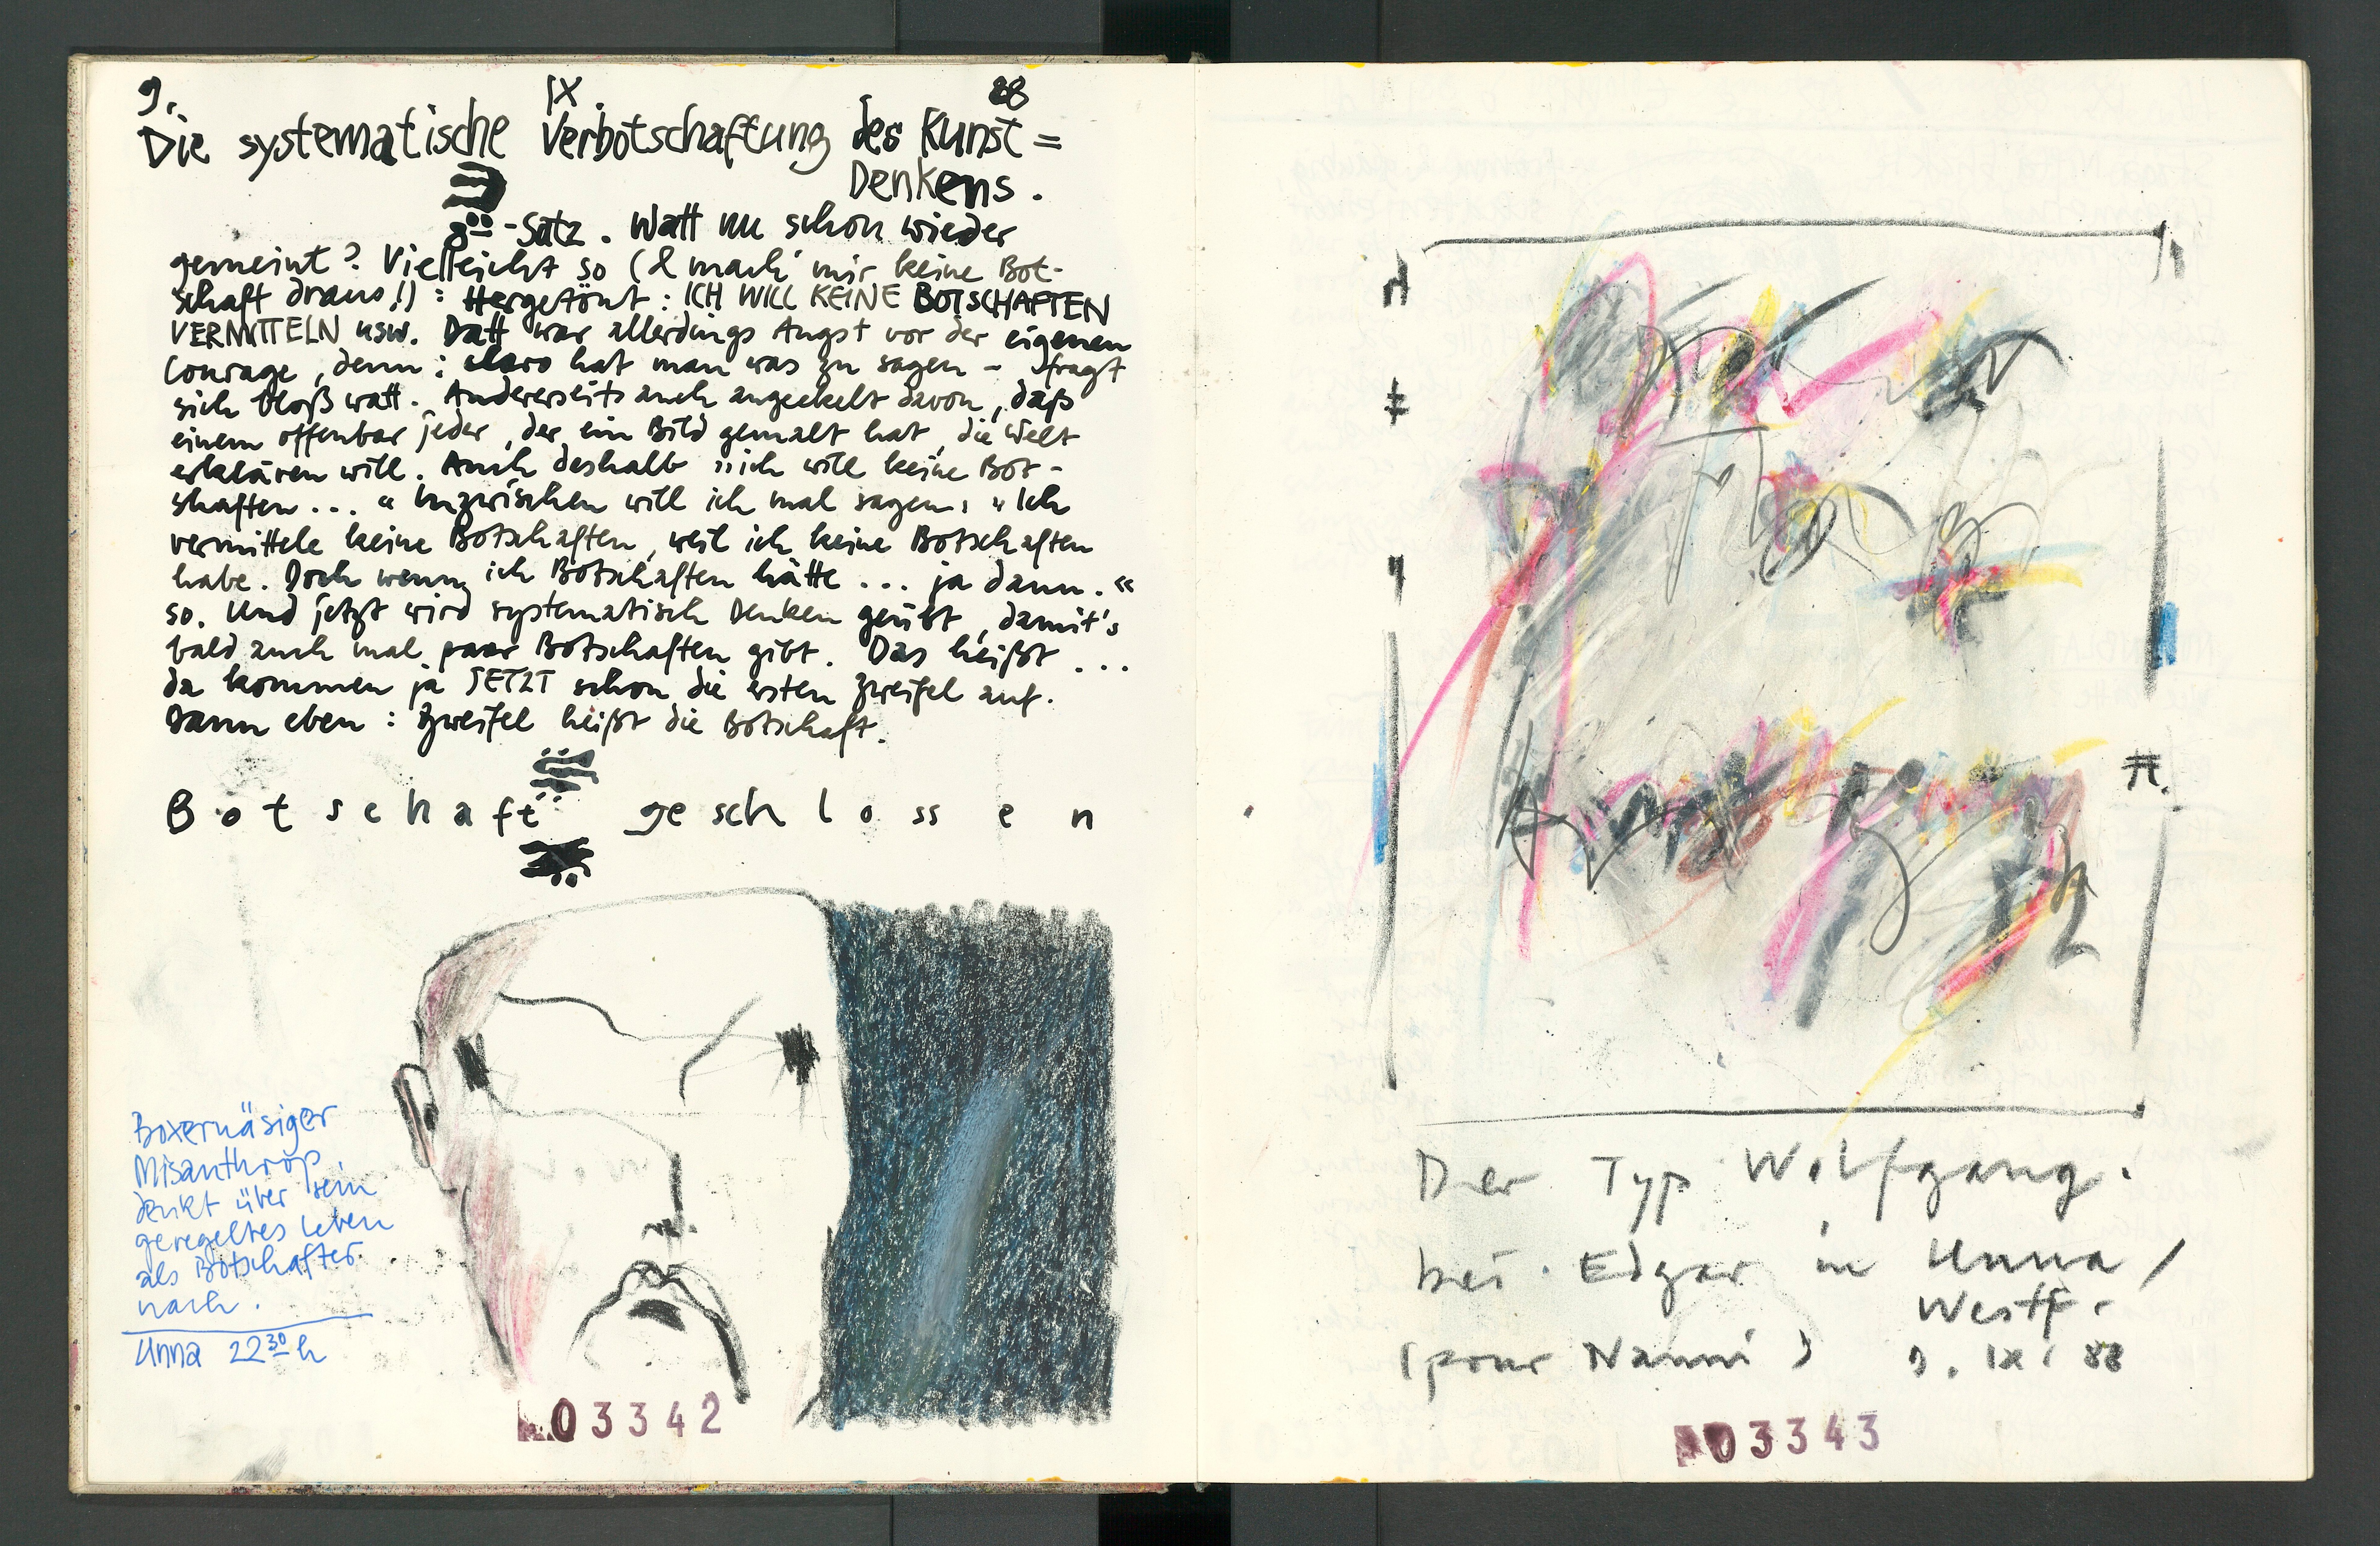 9. IX 88
Die systematische Verbotschaftung des Kunst=
Denkens.
-Satz. Watt nu schon wieder
gemeint? Vielleicht so (& mach' mir keine Bot-
schaft draus!) : Hergetönt: ICH WILL KEINE BOTSCHAFTEN
VERMITTELN usw. Datt war allerdings Angst vor der eigenen
Courage, denn: claro hat man was zu sagen – fragt
sich bloß watt. Andererseits auch angeekelt davon, daß
einem offenbar jeder, der ein Bild gemalt hat, die Welt
erklären will. Auch deshalb "ich will keine Bot-
schaften... " Inzwischen will ich mal sagen: "Ich
vermittele keine Botschaften, weil ich keine Botschaften
habe. Doch wenn ich Botschaften hätte ... ja dann."
so. Und jetzt wird systematisch Denken geübt, damit's
bald auch mal paar Botschaften gibt. Das heißt ...
da kommen ja JETZT schon die ersten Zweifel auf.
Dann eben: Zweifel heißt die Botschaft.
Botschaft geschlossen
Boxernäsiger
Misanthrop
denkt über sein
geregeltes Leben
als Botschafter
nach.
Unna 22 30 h
03342
Der Typ Wolfgang.
bei Edgar in Unna/
Westf.
(pour Nanni) 9. IX. 88
03343